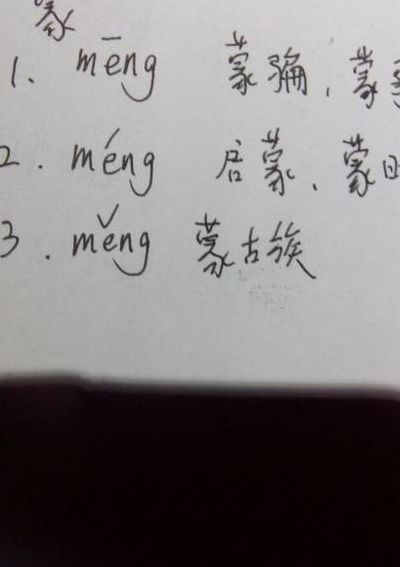 蒙
1. mēng 蒙骗,蒙
2. méng 启蒙、蒙
3. měng 蒙古族